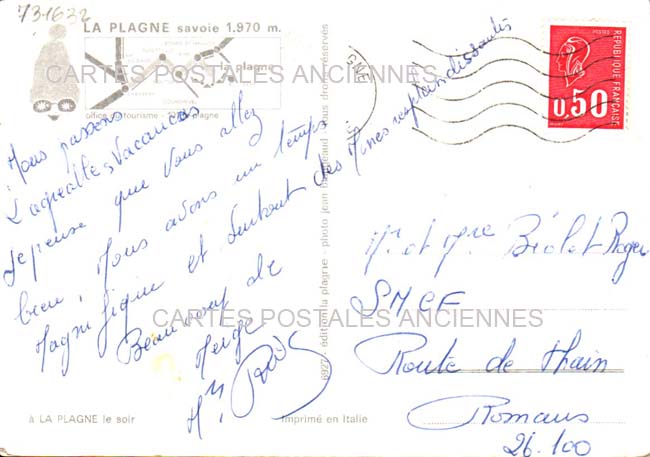 731632
LA PLAGNE savoie 1.970 m.
la plagne
CARTES POSTALES ANCIENNES
office du tourisme - plagne
Nous passons
d'agréables Vacances
Je pense que vous allez
bien, Nous avons un temps
Magnifique et surtout des Mines resplendissantes
Beaucoup de
Neige
6927 édition la plagne - photo jean droits réservés
à LA PLAGNE le soir
Imprimé en Italie
POSTES
REPUBLIQUE FRANÇAISE
0,50
Mr et Mme Biolet Roger
SNCF
CARTES POSTALES ANCIENNES
Route de Thain
Romans
26.100